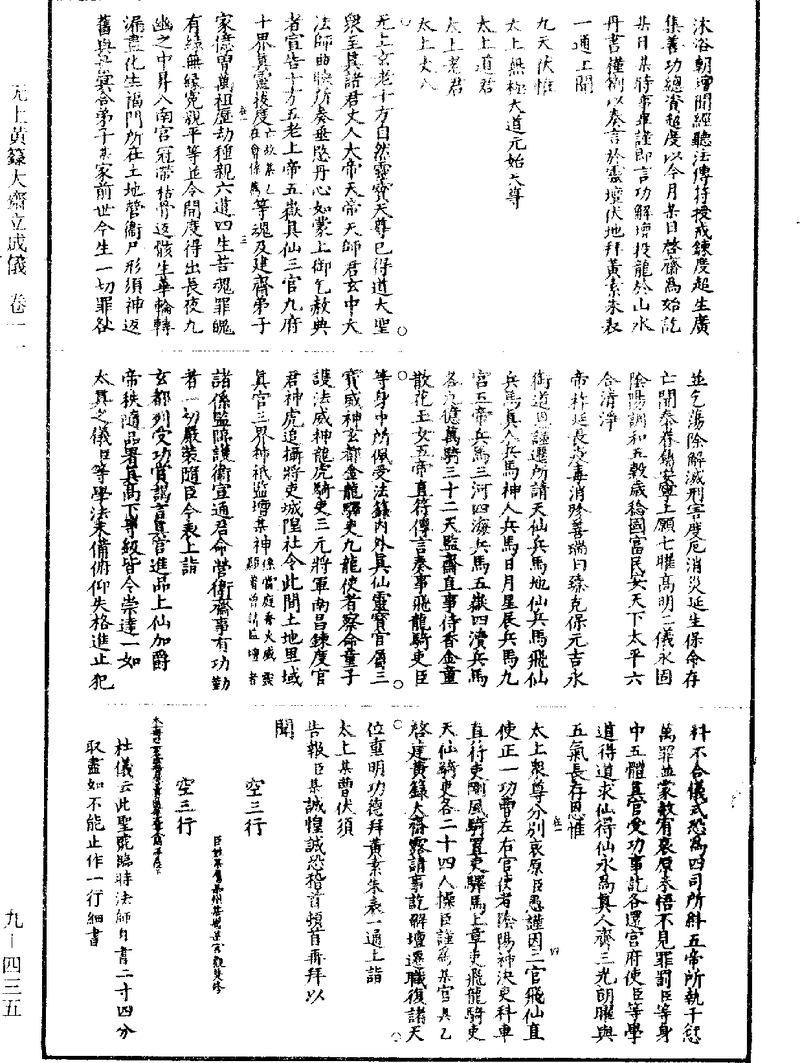 沐浴朝禮開經聽法傳符授戒鍊度超生廣
集善功總資超度以今月某日啓齋為始訖
某日某時事畢謹即言功解壇投龍於山水
丹書種 以奏言於靈壇伏地拜黃素朱表
一通上聞
九天伏惟
太上無極大道元始天尊
太上道君
太上老君
太上丈人
无上玄老十方自然靈寶天尊已得道大聖
衆至真諸君丈人大帝天帝天師君玄中大
法師曲映所奏垂愍丹心如蒙上御乞赦典
者宣告十方五老上帝五嶽真仙三官九府
十界真靈拔度亡故某乙在會係薦等魂及建齋弟子
家億曾萬祖歷劫種親六道四生苦魂罪魄
有緣無緣冤親平等並令開度得出長夜九
幽之中昇入南宮冠帶枯骨返骸生華輪轉
漏盡化生福門所在土地營衛尸形須神返
舊與 冥合弟子某家前世今生一切罪咎
並乞蕩除解滅刑害度厄消災延生保命存
亡開泰眷屬安寧上願七曜高明二儀永固
陰陽調和五穀歲稔國富民安天下太平六
合清淨
帝祚延長疫毒消殄善瑞日臻克保元吉永
御道 謹還所請天仙兵馬地仙兵馬飛仙
兵馬真人兵馬神人兵馬日月星辰兵馬九
宮五帝兵馬三河四海兵馬五嶽四瀆兵馬
各九億萬騎三十二天監齋直事侍香金童
散花玉女五帝直符傳言奏事飛龍騎吏臣
等身中所佩受法籙内外真仙靈寶官屬三
寶威神玄都金龍驛吏九龍使者察命童子
護法威神龍虎騎吏三元將軍南昌鍊度官
君神虎追攝將吏城隍社令此間土地里域
真官三界神祇監壇某神係當庭香火威靈願曾皆請監壇者
諸係監臨護衛宣通君命營衛齋事有功勤
者一切嚴裝隨臣今表上詣
玄都列受功賞謁言真官進品上仙加爵
帝秩隨品署真高下等級皆令崇達一如
太真之儀臣等學法未備俯仰失格進止犯
科不合儀式恐為四司所糾五帝所執千愆
萬罪並蒙赦宥哀原恭悟不見罪罰臣等身
中五體真官受功事訖各還宮府使臣等學
道得道求仙得仙永為真人齊三光朗曜與
五氣長存恩惟
太上衆尊分別哀原臣愚謹因三官飛仙直
使正一功曹左右官使者陰陽神決吏科車
直符吏剛風騎置吏驛馬上章吏飛龍騎吏
天仙騎吏各二十四人操臣謹為某官某乙
啓建黃籙大齋露請事訖解壇還職復諸天
位重明功德拜黃素朱表一通上詣
太上某曹伏須
告報臣某誠惶誠恐稽首頓首再拜以
聞
空三行
空三行
杜儀云此聖號臨時法師自書二寸四分
取盡如不能止作一行細書
无上黃籙大齋立成儀　卷一一
九—四三五